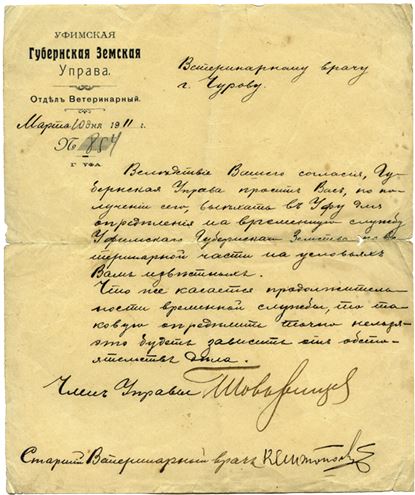 УФИМСКАЯ
Губернская Земская
Управа.
Отдѣлъ Ветеринарный.
Марта 10 дня 1911 г.
№ 854
г. УФА
Ветеринарному врачу
г. Чурову.
Вслѣдствіе Вашего согласія, Гу-
бернская Управа проситъ Васъ, по по-
лученіи сего, выѣхать въ Уфу для
опредѣленія на временную службу
Уфимскаго Губернскаго Земства по Ве-
теринарной части на условіяхъ
Вамъ извѣстныхъ.
Что же касается продолжитель-
ности временной службы, то та-
ковую опредѣлить точно нельзя-
это будетъ зависить отъ обсто-
ятельствъ дѣла.
Членъ Управы
Старшій Ветеринарный врачъ